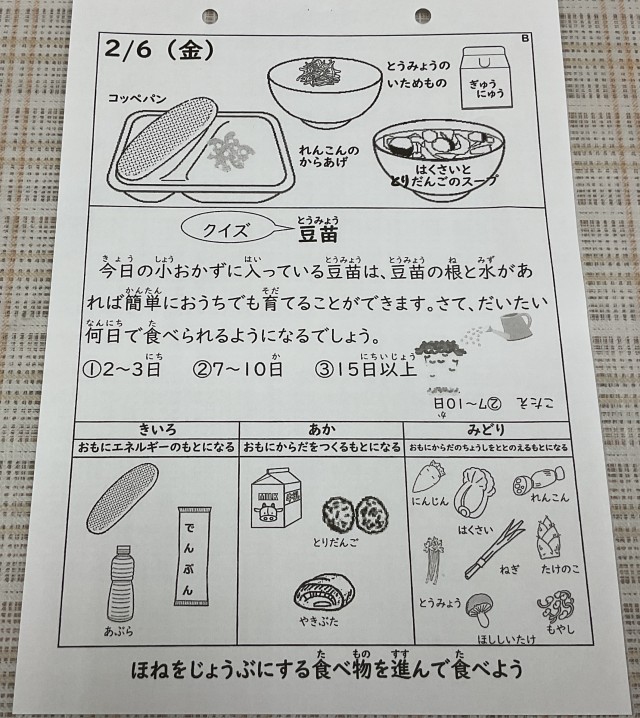 B
2/6（金）
コッペパン
とうみょうの
いためもの
ぎゅう
にゅう
れんこんの
からあげ
はくさいと
とりだんごのスープ
クイズ
とうみょう
豆苗
きょう しょう はい とうみょう とうみょう ね みず
今日の小おかずに入っている豆苗は、豆苗の根と水があ
かんたん そだ
れば簡単におうちでも育てることができます。さて、だいたい
なんにち た
何日で食べられるようになるでしょう。
にち か にちいじょう
①2～3日 ②7～10日 ③15日以上
こたえ ②7～10日
か
きいろ あか みどり
おもにエネルギーのもとになる おもにからだをつくるもとになる おもにからだのちょうしをととのえるもとになる
でんぷん
あぶら
MILK
牛乳
とりだんご
やきぶた
にんじん
はくさい
れんこん
ねぎ
たけのこ
とうみょう
ほししいたけ
もやし
た もの すす た
ほねをじょうぶにする食べ物を進んで食べよう